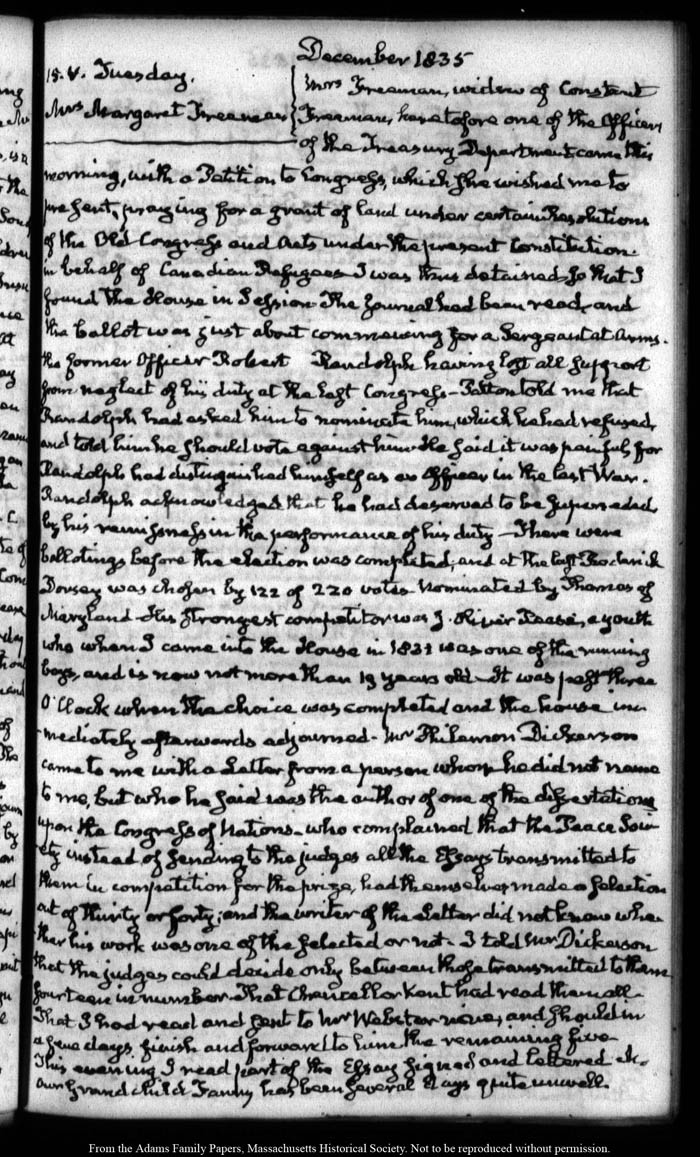 December 1835
15. V. Tuesday.
Mrs Margaret Freeman
Mrs Freeman, widow of Constant
Freeman, heretofore one of the Officers
of the Treasury Department came this
morning, with a Petition to Congress, which she wished me to
present, praying for a grant of land under certain Resolutions
of the Old Congress and Acts under the present Constitution.
in behalf of Canadian Refugees I was thus detained so that I
found the House in Session The Journal had been read, and
the ballot was just about commencing for a Sergeant at Arms.
the former Officer Robert Randolph having lost all support
from neglect of his duty at the last Congress – Patton told me that
Randolph had asked him to nominate him, which he had refused,
and told him he should vote against him He said it was painful, for
Randolph had distinguished himself as an Officer in the last War.
Randolph acknowledged that he had deserved to be superseded
by his remissness in the performance of his duty – There were
ballotings before the election was completed; and at the last Roderick
Dorsey was chosen by 122 of 220 votes nominated by Thomas of
Maryland – His strongest competitor was J. Oliver Pease, a youth
who when I came into the House in 1831 was one of the running
boys, and is now not more than 19 years old – It was past three
O'Clock when the choice was completed and the house im-
mediately afterwards adjourned – Mr Philemon Dickerson
came to me with a Letter from a person whom he did not name
to me, but who he said was the author of one of the dissertations
upon the Congress of Nations – who complained that the Peace Soci-
ety instead of sending to the judges all the Essays transmitted to
them in competition for the prize, had themselves made a selection
out of thirty or forty; and the writer of the Letter did not know whe-
ther his work was one of the selected or not – I told Mr Dickerson
that the judges could decide only between those transmitted to them
fourteen in number – That Chancellor Kent had read them all –
That I had read and sent to Mr Webster nine, and should in
a few days finish and forward to him the remaining five –
This evening I read part of the Essay signed and lettered
Our Grand child Fanny has been several days quite unwell.
From the Adams Family Papers, Massachusetts Historical Society. Not to be reproduced without permission.